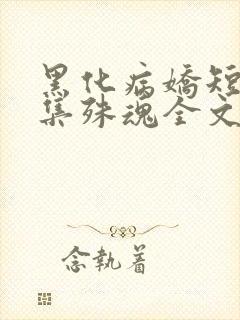 黑化病嬌短
集殊魂全文
念執着